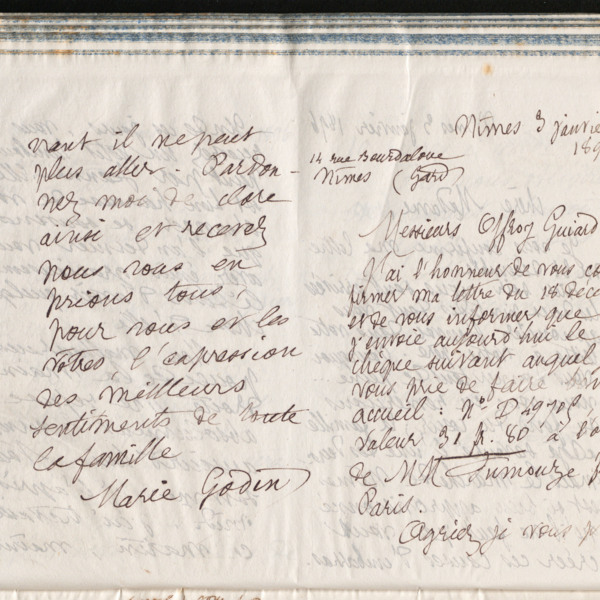 nant il ne peut
plus aller. Pardon-
nez moi de clore
ainsi et recevez
nous vous en
prions tous
pour vous et les
vôtres l'expression
des meilleurs
sentiments de toute
la famille
Marie Godin
Nîmes 3 janvie
189
14 rue Bourdaloue
Nîmes (Gard)
Messieurs Offroy Guiard
J'ai l'honneur de vous co
firmer ma lettre du 18 déce
et de vous informer que
j'envoie aujourd'hui le
chèque suivant auquel
vous prie de faire
accueil : N° D 49705
valeur 31 fr. 80 à l'o
de MM Dumouze
Paris.
Agréez je vous p